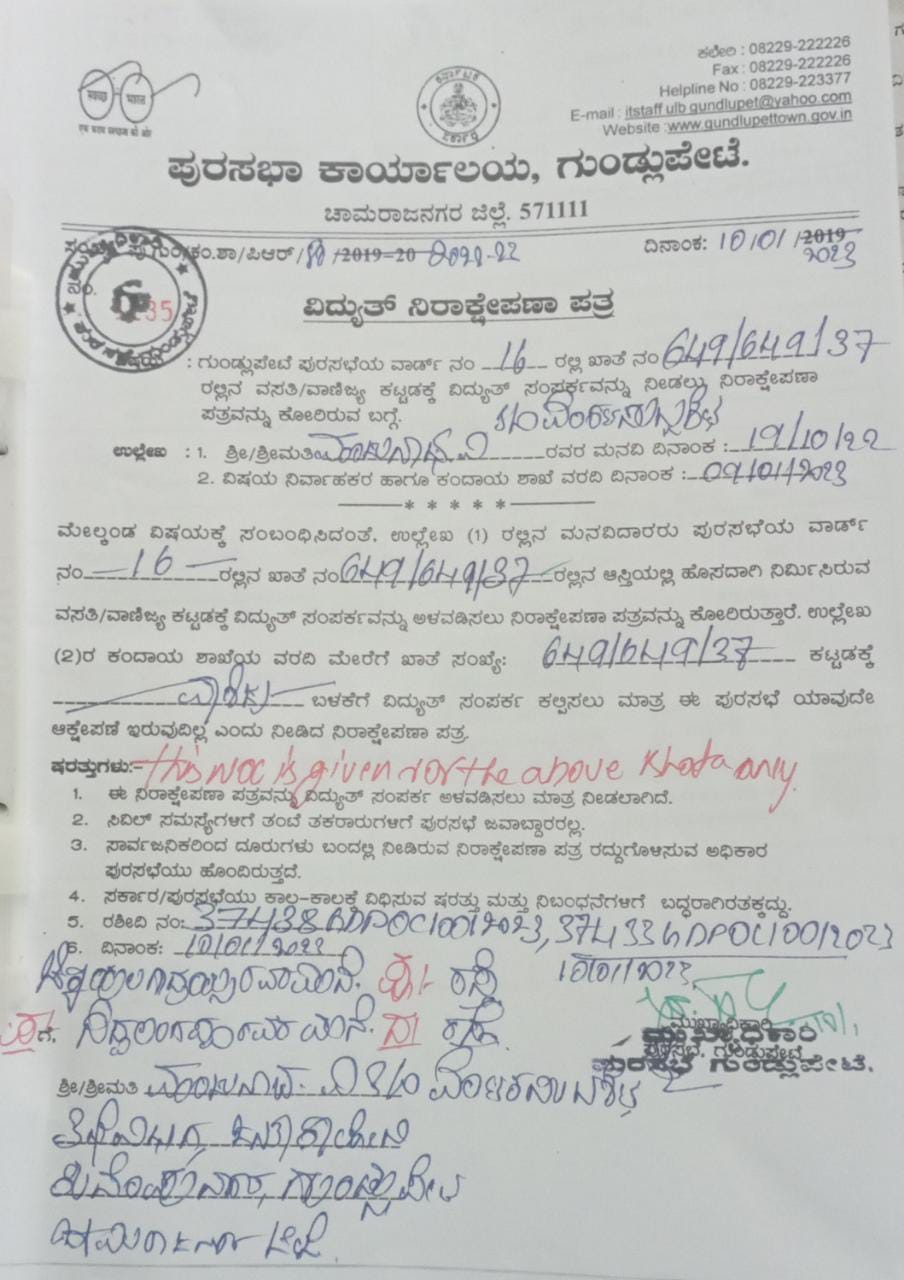 ಕಛೇರಿ : 08229-222226
Fax : 08229-222226
Helpline No : 08229-223377
E-mail : itstaff ulb gundlupet@yahoo.com
Website :www.gundlupettown.gov.in
स्वच्छ भारत
एक कदम स्वच्छता की ओर
ಪುರಸಭಾ ಕಾರ್ಯಾಲಯ, ಗುಂಡ್ಲುಪೇಟೆ.
ಚಾಮರಾಜನಗರ ಜಿಲ್ಲೆ. 571111
ಪು.ಗುಂ/ಕಂ.ಶಾ/ಪಿಆರ್/ /2019-20
ದಿನಾಂಕ: 10/01 /2019 2023
35
ವಿದ್ಯುತ್ ನಿರಾಕ್ಷೇಪಣಾ ಪತ್ರ
: ಗುಂಡ್ಲುಪೇಟೆ ಪುರಸಭೆಯ ವಾರ್ಡ್ ನಂ 16 ರಲ್ಲಿ ಖಾತೆ ನಂ 649/649/37
ರಲ್ಲಿನ ವಸತಿ/ವಾಣಿಜ್ಯ ಕಟ್ಟಡಕ್ಕೆ ವಿದ್ಯುತ್ ಸಂಪರ್ಕವನ್ನು ನೀಡಲು ನಿರಾಕ್ಷೇಪಣಾ
ಪತ್ರವನ್ನು ಕೋರಿರುವ ಬಗ್ಗೆ.
ಉಲ್ಲೇಖ : 1. ಶ್ರೀ/ಶ್ರೀಮತಿ ಮಂಜುನಾಥ.ವಿ ರವರ ಮನವಿ ದಿನಾಂಕ : 19/10/22
2. ವಿಷಯ ನಿರ್ವಾಹಕರ ಹಾಗೂ ಕಂದಾಯ ಶಾಖೆ ವರದಿ ದಿನಾಂಕ : 09/01/2023
* * * * *
ಮೇಲ್ಕಂಡ ವಿಷಯಕ್ಕೆ ಸಂಬಂಧಿಸಿದಂತೆ, ಉಲ್ಲೇಖ (1) ರಲ್ಲಿನ ಮನವಿದಾರರು ಪುರಸಭೆಯ ವಾರ್ಡ್
ನಂ 16 ರಲ್ಲಿನ ಖಾತೆ ನಂ 649/649/37 ರಲ್ಲಿನ ಆಸ್ತಿಯಲ್ಲಿ ಹೊಸದಾಗಿ ನಿರ್ಮಿಸಿರುವ
ವಸತಿ/ವಾಣಿಜ್ಯ ಕಟ್ಟಡಕ್ಕೆ ವಿದ್ಯುತ್ ಸಂಪರ್ಕವನ್ನು ಅಳವಡಿಸಲು ನಿರಾಕ್ಷೇಪಣಾ ಪತ್ರವನ್ನು ಕೋರಿರುತ್ತಾರೆ. ಉಲ್ಲೇಖ
(2)ರ ಕಂದಾಯ ಶಾಖೆಯ ವರದಿ ಮೇರೆಗೆ ಖಾತೆ ಸಂಖ್ಯೆ: 649/649/37 ಕಟ್ಟಡಕ್ಕೆ
ಬಳಕೆಗೆ ವಿದ್ಯುತ್ ಸಂಪರ್ಕ ಕಲ್ಪಿಸಲು ಮಾತ್ರ ಈ ಪುರಸಭೆ ಯಾವುದೇ
ಆಕ್ಷೇಪಣೆ ಇರುವುದಿಲ್ಲ ಎಂದು ನೀಡಿದ ನಿರಾಕ್ಷೇಪಣಾ ಪತ್ರ.
ಷರತ್ತುಗಳು:- This NOC is given for the above Khata only.
1. ಈ ನಿರಾಕ್ಷೇಪಣಾ ಪತ್ರವನ್ನು ವಿದ್ಯುತ್ ಸಂಪರ್ಕ ಅಳವಡಿಸಲು ಮಾತ್ರ ನೀಡಲಾಗಿದೆ.
2. ಸಿವಿಲ್ ಸಮಸ್ಯೆಗಳಿಗೆ ತಂಟೆ ತಕರಾರುಗಳಿಗೆ ಪುರಸಭೆ ಜವಾಬ್ದಾರರಲ್ಲ.
3. ಸಾರ್ವಜನಿಕರಿಂದ ದೂರುಗಳು ಬಂದಲ್ಲಿ ನೀಡಿರುವ ನಿರಾಕ್ಷೇಪಣಾ ಪತ್ರ ರದ್ದುಗೊಳಿಸುವ ಅಧಿಕಾರ
ಪುರಸಭೆಯು ಹೊಂದಿರುತ್ತದೆ.
4. ಸರ್ಕಾರ/ಪುರಸಭೆಯು ಕಾಲ-ಕಾಲಕ್ಕೆ ವಿಧಿಸುವ ಷರತ್ತು ಮತ್ತು ನಿಬಂಧನೆಗಳಿಗೆ ಬದ್ಧರಾಗಿರತಕ್ಕದ್ದು.
5. ರಶೀದಿ ನಂ: 37438 GDPOC10012023, 37433 GDPOC10012023
6. ದಿನಾಂಕ: 10/01/2023
10/01/2023
ರಸ್ತೆ
ಗೆ. ಮನೆ. ರಸ್ತೆ
ಮುಖ್ಯಾಧಿಕಾರಿ
ಪುರಸಭೆ, ಗುಂಡ್ಲುಪೇಟೆ
ಮುಖ್ಯಾಧಿಕಾರಿ
ಪುರಸಭೆ ಗುಂಡ್ಲುಪೇಟೆ.
ಶ್ರೀ/ಶ್ರೀಮತಿ ಮಂಜುನಾಥ. ವಿ
ಗುಂಡ್ಲುಪೇಟೆ